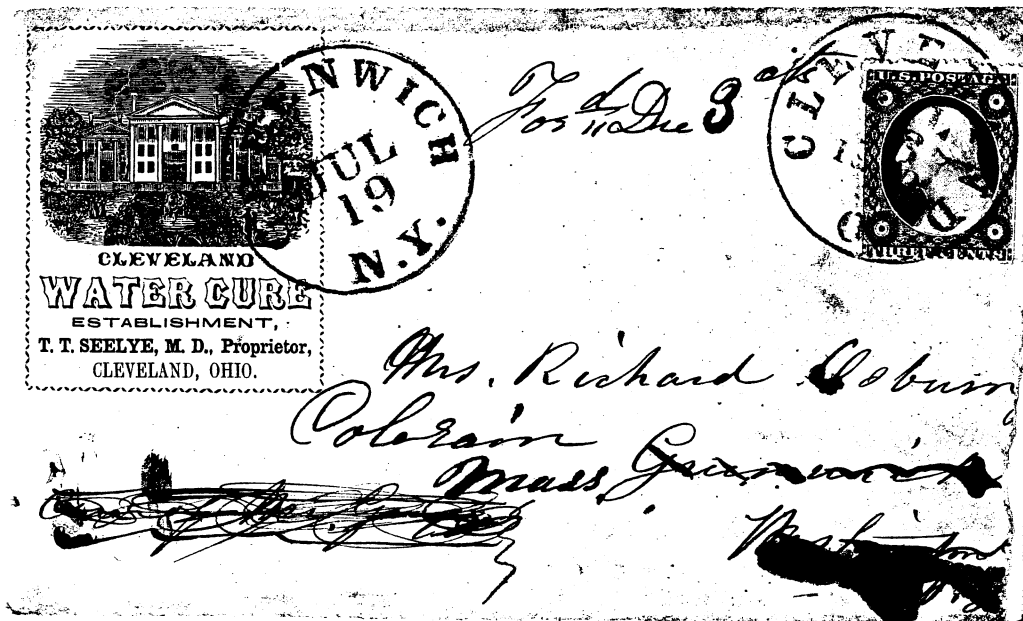 CLEVELAND
WATER CURE
ESTABLISHMENT,
T. T. SEELYE, M. D., Proprietor,
CLEVELAND, OHIO.
NWICH
JUL
19
N.Y.
Forᵈ Due 3 cts
CLEVE
O
U.S. POSTAGE
THREE CENTS
Mrs. Richard Osburn
Colerain
Mass. Greenwich
Washington